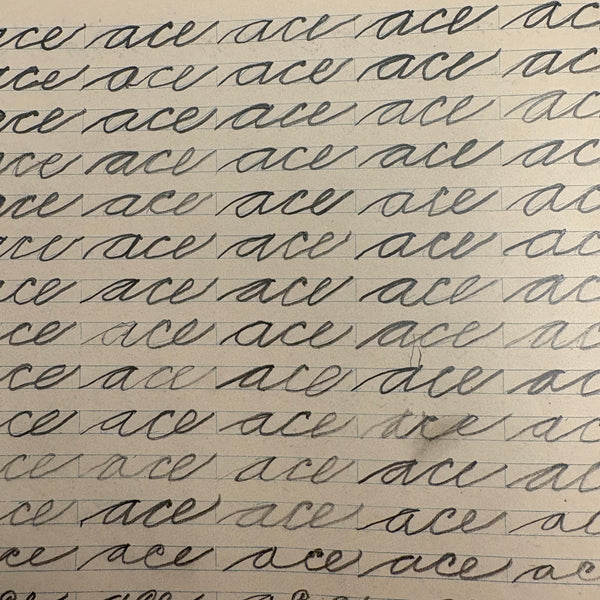 ace ace ace ace ac
ace ace ace ace ac
ace ace ace ace ac
ace ace ace ace ac
ace ace ace ace ac
ace ace ace ace ac
ce ace ace ace ac
ce ace ace ace ac
ce ace ace ace ac
ce ace ace ace ac
ce ace ace ace ac
ce ace ace ace ac
ce ace ace ace ac